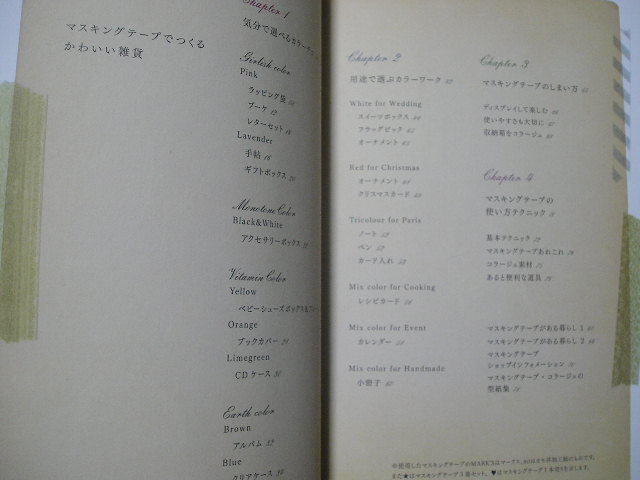 マスキングテープでつくる
かわいい雑貨
Chapter 1
気分で選べるカラー
Girlish color
Pink
ラッピング袋
ブーケ 12
レターセット
Lavender
手帖 16
ギフトボックス 20
Monotone Color
Black&White
アクセサリーボックス
Vitamin Color
Yellow
ベビーシューズボックス&
Orange
ブックカバー
Limegreen
CDケース 30
Earth color
Brown
アルバム 32
Blue
クリアケース
Chapter 2
用途で選ぶカラーワーク
White for Wedding
スイーツボックス
フラッグピック
オーナメント
Red for Christmas
オーナメント
クリスマスカード
Tricolour for Paris
ノート 52
ペン 52
カード入れ 52
Mix color for Cooking
レシピカード
Mix color for Event
カレンダー
Mix color for Handmade
小冊子 60
Chapter 3
マスキングテープのしまい方
ディスプレイして楽しむ 66
使いやすさも大切に 67
収納箱をコラージュ
Chapter 4
マスキングテープの
使い方テクニック
基本テクニック 72
マスキングテープあれこれ
コラージュ素材 75
あると便利な道具
マスキングテープがある暮らし 1
マスキングテープがある暮らし 2
マスキングテープ
ショップインフォメーション
マスキングテープ・コラージュの
型紙集
※使用したマスキングテープのMARK'Sはマークス、